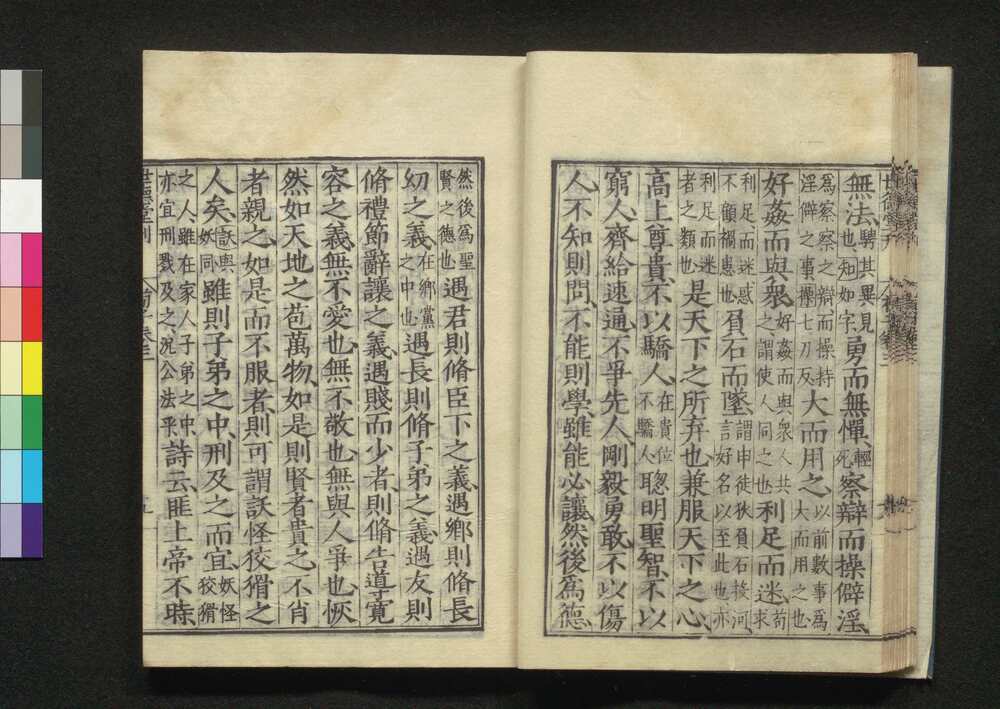 無法騁其異見也知如字勇而無憚輕死察辯而操僻淫
爲察察之辯而操持淫僻之事操七刀反大而用之以前數事爲大而用之也
好姦而與衆好姦而與衆人共之謂使人同之也利足而迷苟求
利足而迷惑不顧禍患也負石而墜謂申徒狄負石投河言好名以至此也亦
利足而迷者之類也是天下之所弃也兼服天下之心
高上尊貴不以驕人在貴位不驕人聦明聖智不以
窮人齊給速通不爭先人剛毅勇敢不以傷
人不知則問不能則學雖能必讓然後爲德
然後爲聖賢之德也遇君則脩臣下之義遇鄉則脩長
幼之義在鄉黨之中也遇長則脩子弟之義遇友則
脩禮節辭讓之義遇賤而少者則脩告導寬
容之義無不愛也無不敬也無與人爭也恢
然如天地之苞萬物如是則賢者貴之不肖
者親之如是而不服者則可謂訞怪狡猾之
人矣訞與妖同雖則子弟之中刑及之而宜妖怪狡猾
之人雖在家人子弟之中亦宜刑戮及之況公法乎詩云匪上帝不時
世德堂刊